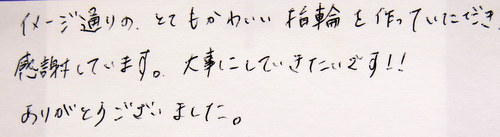 イメージ通りの、とてもかわいい指輪を作っていただき
感謝しています。大事にしていきたいです!!
ありがとうございました。